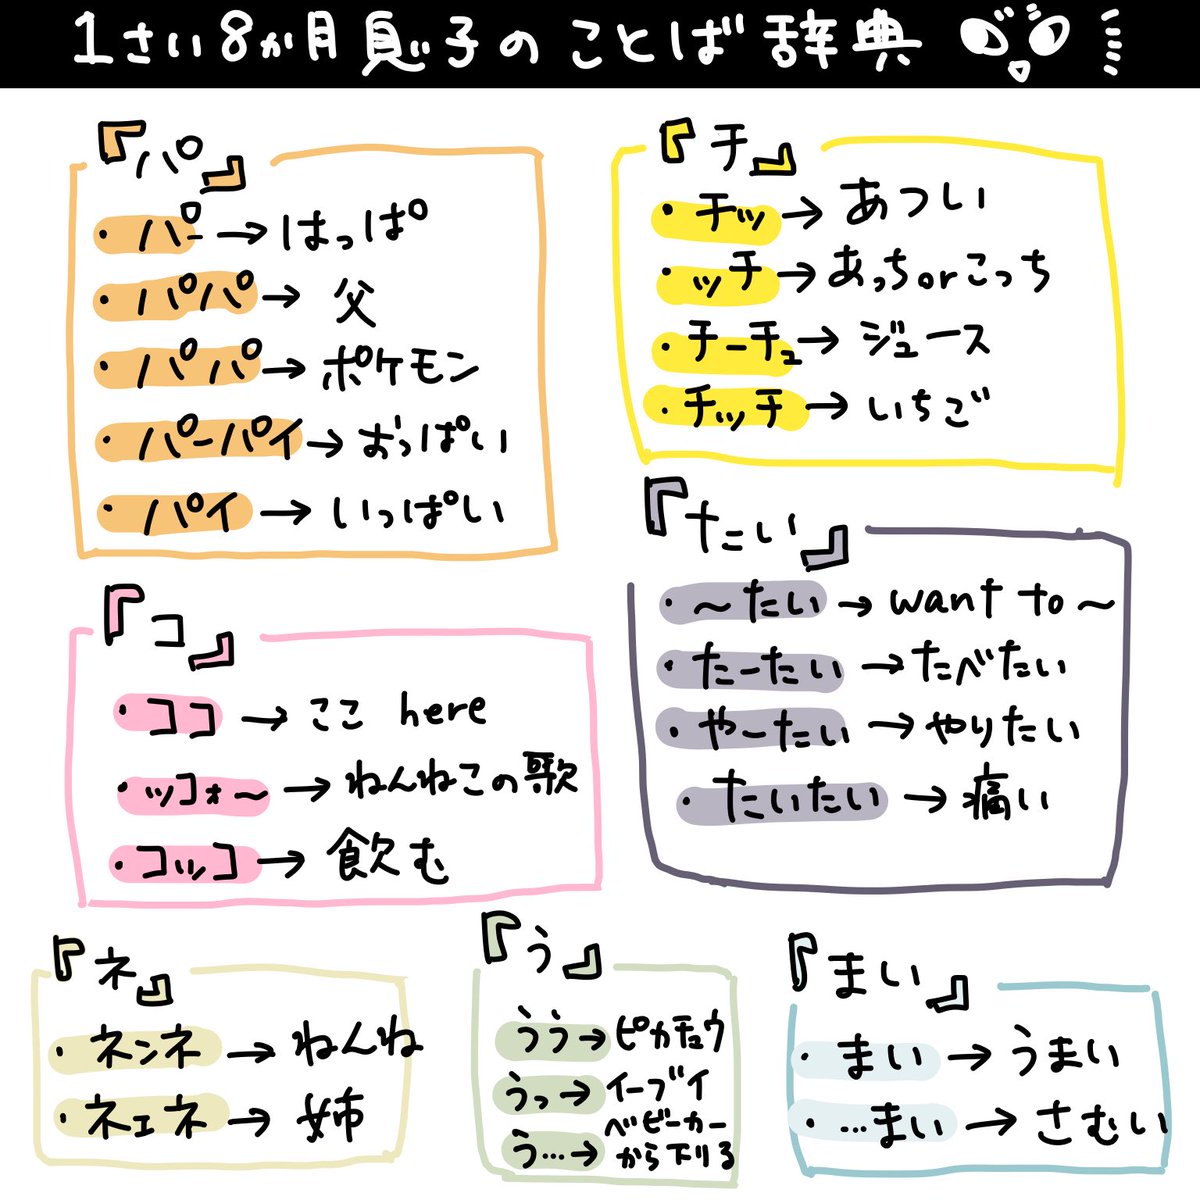 1さい8か月息子のことば辞典
『パ』
・パー→はっぱ
・パパ→父
・パパ→ポケモン
・パーパイ→おっぱい
・パイ→いっぱい
『チ』
・チッ→あつい
・ッチ→あっちorこっち
・チーチュ→ジュース
・チッチ→いちご
『たい』
・〜たい→want to〜
・たーたい→たべたい
・やーたい→やりたい
・たいたい→痛い
『コ』
・ココ→ここ here
・ッコォ〜→ねんねこの歌
・コッコ→飲む
『ネ』
・ネンネ→ねんね
・ネェネ→姉
『う』
うう→ピカチュウ
うっ→イーブイ
う…→ベビーカー
から下りる
『まい』
・まい→うまい
・…まい→さむい